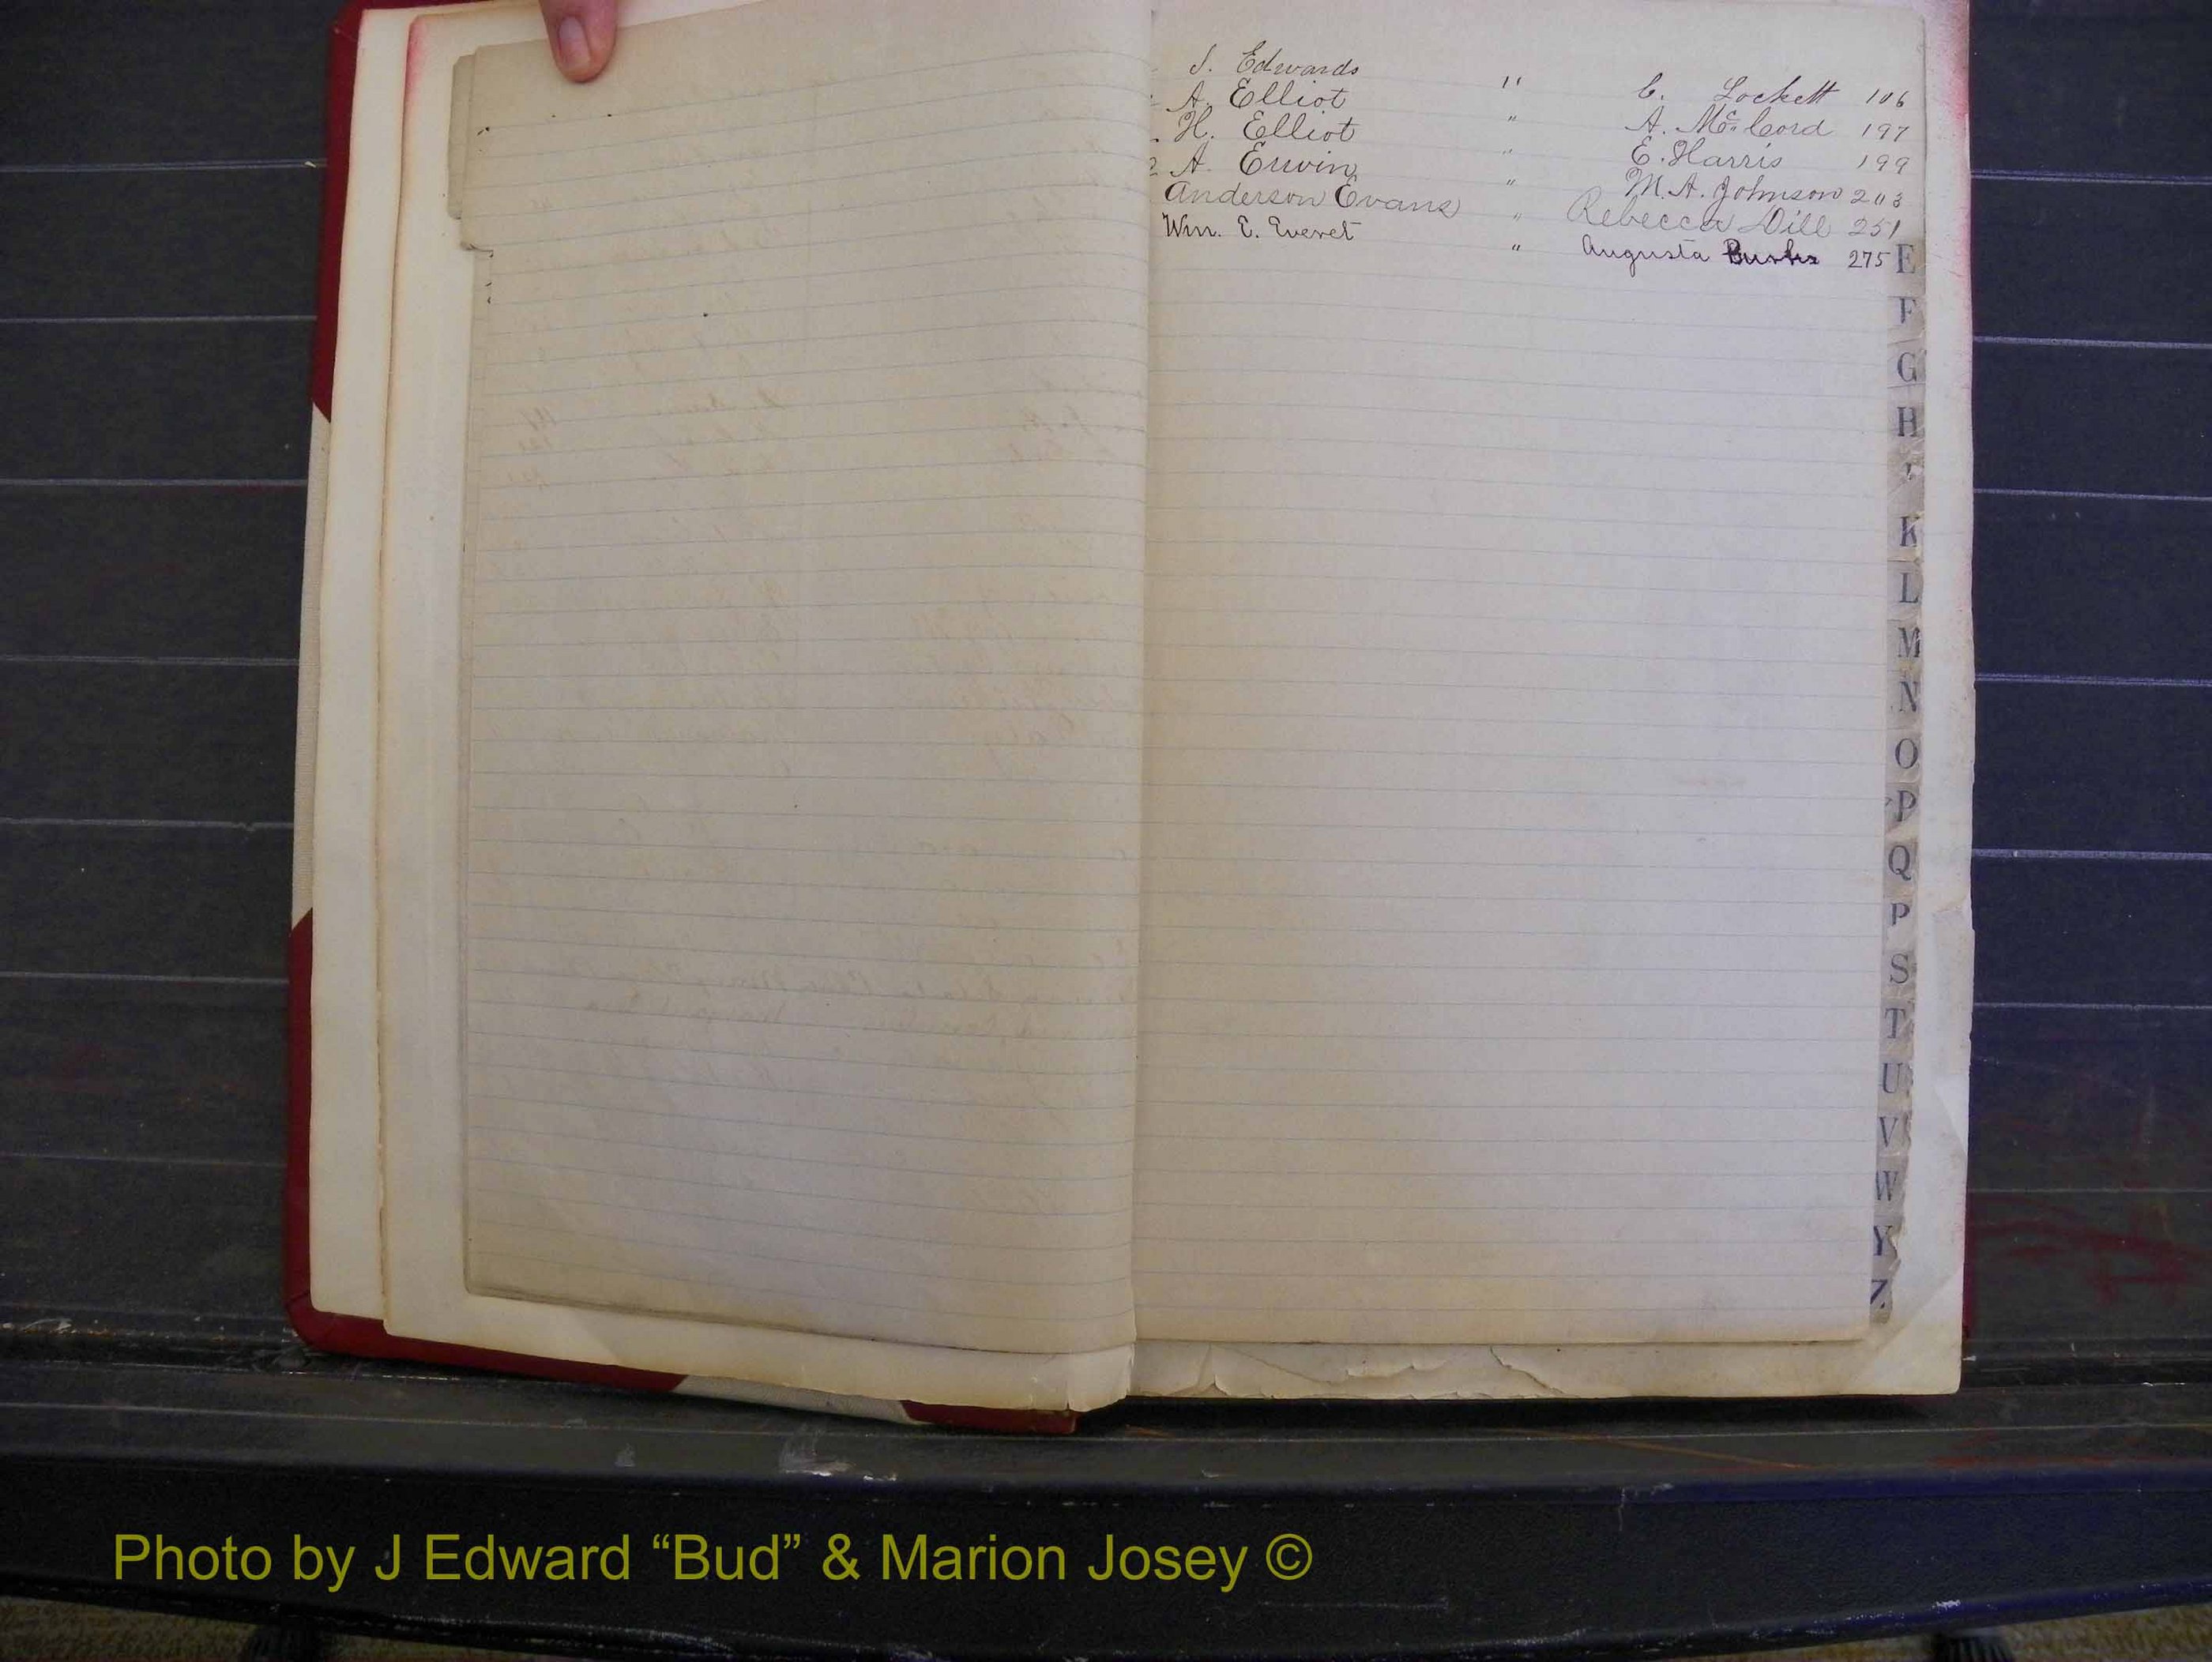 J. Edwards " C. Lockett 106
A. Elliot " A. McCord 197
H. Elliot " E. Harris 199
A. Erwin " M. A. Johnson 203
Anderson Evans " Rebecca Dill 251
Wm. E. Everet " Augusta 275
E
F
G
H
K
L
M
N
O
P
Q
P
S
T
U
V
W
Y
Z
Photo by J Edward “Bud” & Marion Josey ©